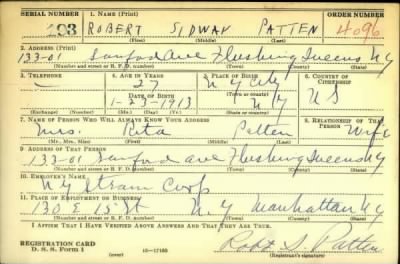 SERIAL NUMBER 1. NAME (Print) ORDER NUMBER
203 ROBERT SIDWAY PATTEN 4096
(First) (Middle) (Last)
2. ADDRESS (Print)
133-01 Sanford Ave Flushing Queens NY
(Number and street or R. F. D. number) (Town) (County) (State)
3. TELEPHONE 4. AGE IN YEARS 5. PLACE OF BIRTH 6. COUNTRY OF CITIZENSHIP
— 27 N Y City
DATE OF BIRTH (Town or county)
1-23-1913 N Y U S
(Exchange) (Number) (Mo.) (Day) (Yr.) (State or country)
7. NAME OF PERSON WHO WILL ALWAYS KNOW YOUR ADDRESS 8. RELATIONSHIP OF THAT PERSON
Mrs. Rita Patten Wife
(Mr., Mrs., Miss) (First) (Middle) (Last)
9. ADDRESS OF THAT PERSON
133-01 Sanford Ave Flushing Queens NY
(Number and street or R. F. D. number) (Town) (County) (State)
10. EMPLOYER'S NAME
N Y Steam Corp
11. PLACE OF EMPLOYMENT OR BUSINESS
130 E 15 St N.Y. Manhattan NY
(Number and street or R. F. D. number) (Town) (County) (State)
I AFFIRM THAT I HAVE VERIFIED ABOVE ANSWERS AND THAT THEY ARE TRUE.
REGISTRATION CARD
D. S. S. Form 1 (over) 16—17105 Robt S. Patten
(Registrant's signature)